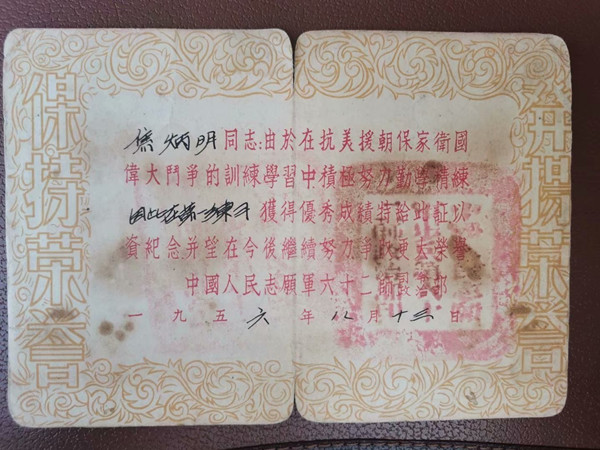 保持荣誉
焦炳明同志:由於在抗美援朝保家衛國
偉大鬥爭的訓練學習中積極努力勤學精練
獲得優秀成績特給此証以
資紀念并望在今後繼續努力爭取更大榮譽
中國人民志願軍六十二師
一九五六年八月十三日
發揚荣誉